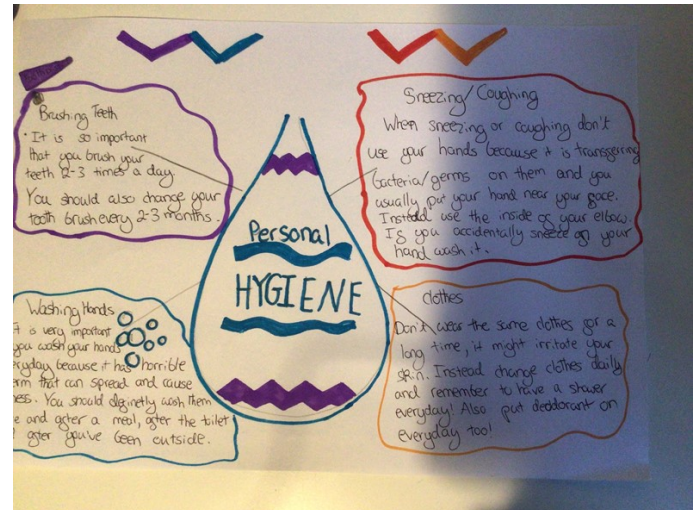 Brushing Teeth
• It is so important
that you brush your
teeth 2-3 times a day.
You should also change your
tooth brush every 2-3 months.
Sneezing/Coughing
When sneezing or coughing don't
use your hands because it is transferring
bacteria/germs on them and you
usually put your hand near your face.
Instead use the inside of your elbow.
If you accidentally sneeze on your
hand wash it.
Personal
HYGIENE
Washing Hands
It is very important
you wash your hands
everyday because it has horrible
germ that can spread and cause
illness. You should definetly wash them
and after a meal, after the toilet
after you've been outside.
Clothes
Don't wear the same clothes for a
long time, it might irritate your
skin. Instead change clothes daily
and remember to have a shower
everyday! Also put deodorant on
everyday too!